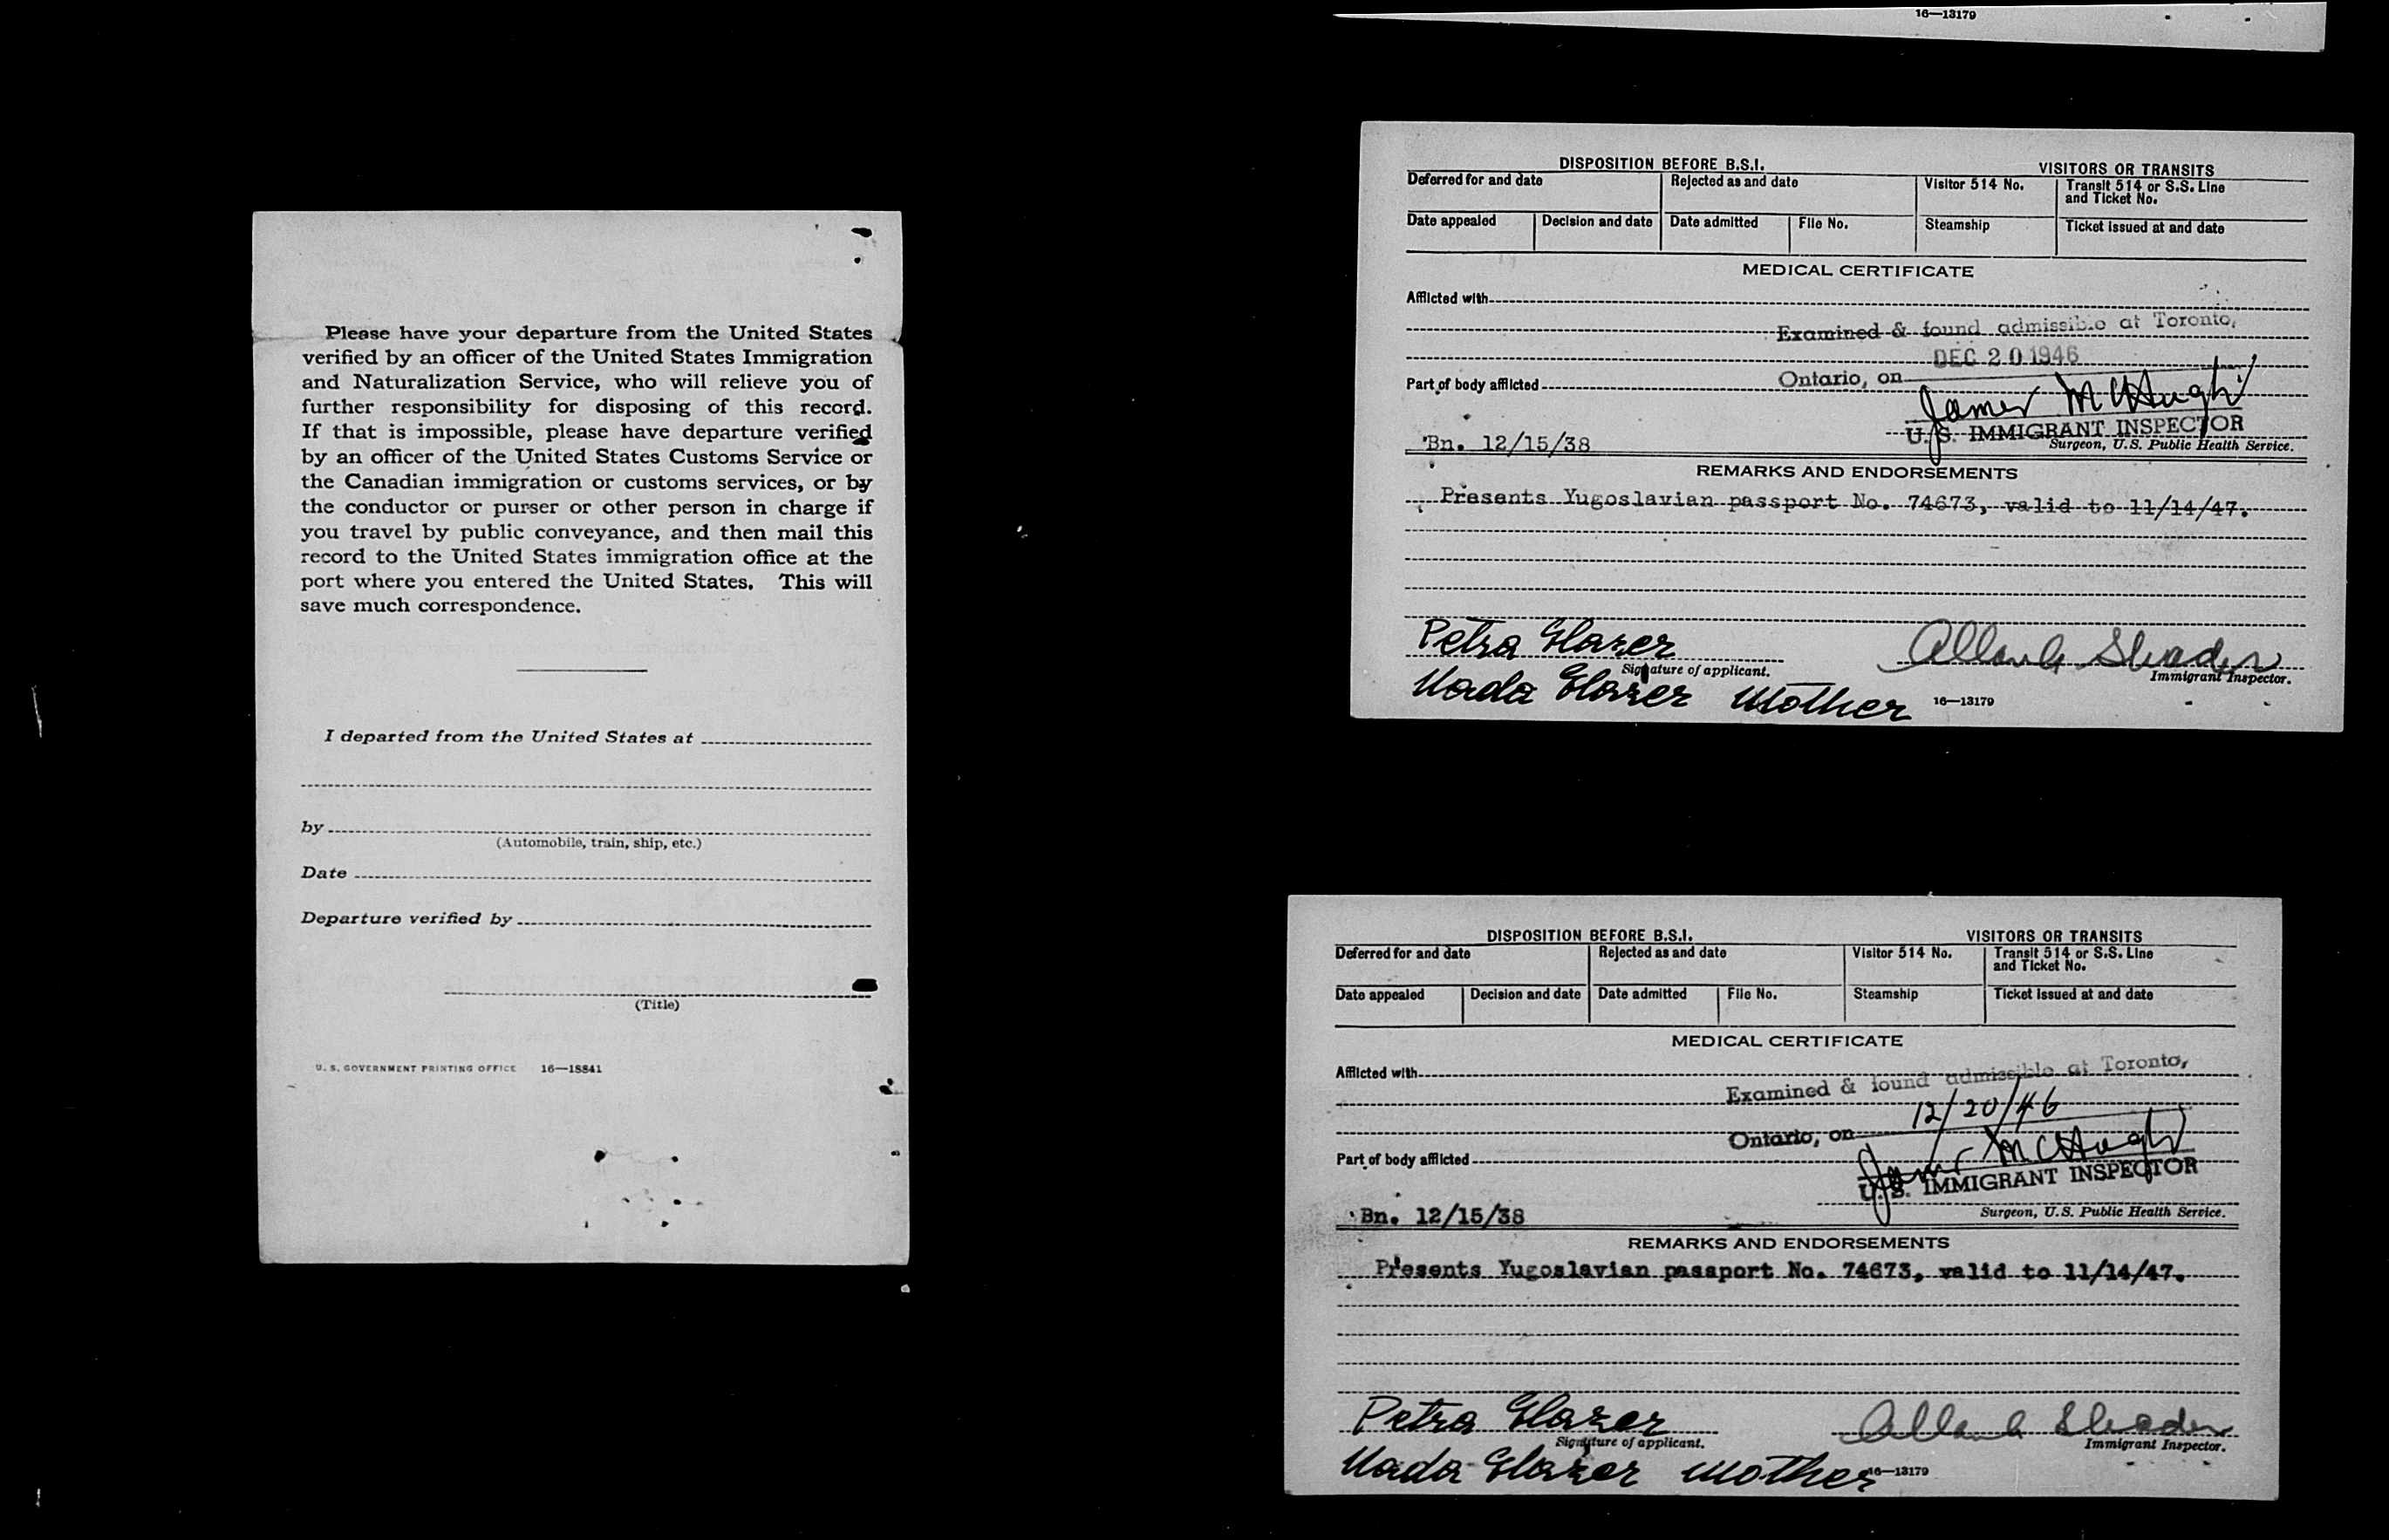 16—13179
Please have your departure from the United States
verified by an officer of the United States Immigration
and Naturalization Service, who will relieve you of
further responsibility for disposing of this record.
If that is impossible, please have departure verified
by an officer of the United States Customs Service or
the Canadian immigration or customs services, or by
the conductor or purser or other person in charge if
you travel by public conveyance, and then mail this
record to the United States immigration office at the
port where you entered the United States. This will
save much correspondence.
I departed from the United States at
by
(Automobile, train, ship, etc.)
Date
Departure verified by
(Title)
U. S. GOVERNMENT PRINTING OFFICE 16—18841
DISPOSITION BEFORE B.S.I. VISITORS OR TRANSITS
Deferred for and date Rejected as and date Visitor 514 No. Transit 514 or S.S. Line
and Ticket No.
Date appealed Decision and date Date admitted File No. Steamship Ticket issued at and date
MEDICAL CERTIFICATE
Afflicted with
Examined & found admissible at Toronto,
DEC 20 1946
Part of body afflicted Ontario, on
James McHugh
U.S. IMMIGRANT INSPECTOR
Bn. 12/15/38 Surgeon, U.S. Public Health Service.
REMARKS AND ENDORSEMENTS
Presents Yugoslavian passport No. 74673, valid to 11/14/47.
Petra Glazer
Signature of applicant. Immigrant Inspector.
Nada Glazer Mother 16—13179
DISPOSITION BEFORE B.S.I. VISITORS OR TRANSITS
Deferred for and date Rejected as and date Visitor 514 No. Transit 514 or S.S. Line
and Ticket No.
Date appealed Decision and date Date admitted File No. Steamship Ticket issued at and date
MEDICAL CERTIFICATE
Afflicted with
Examined & found admissible at Toronto,
12/20/46
Ontario, on
Part of body afflicted
James McHugh
U.S. IMMIGRANT INSPECTOR
Bn. 12/15/38 Surgeon, U.S. Public Health Service.
REMARKS AND ENDORSEMENTS
Presents Yugoslavian passport No. 74673, valid to 11/14/47.
Petra Glazer
Signature of applicant. Immigrant Inspector.
Nada Glazer Mother 16—13179